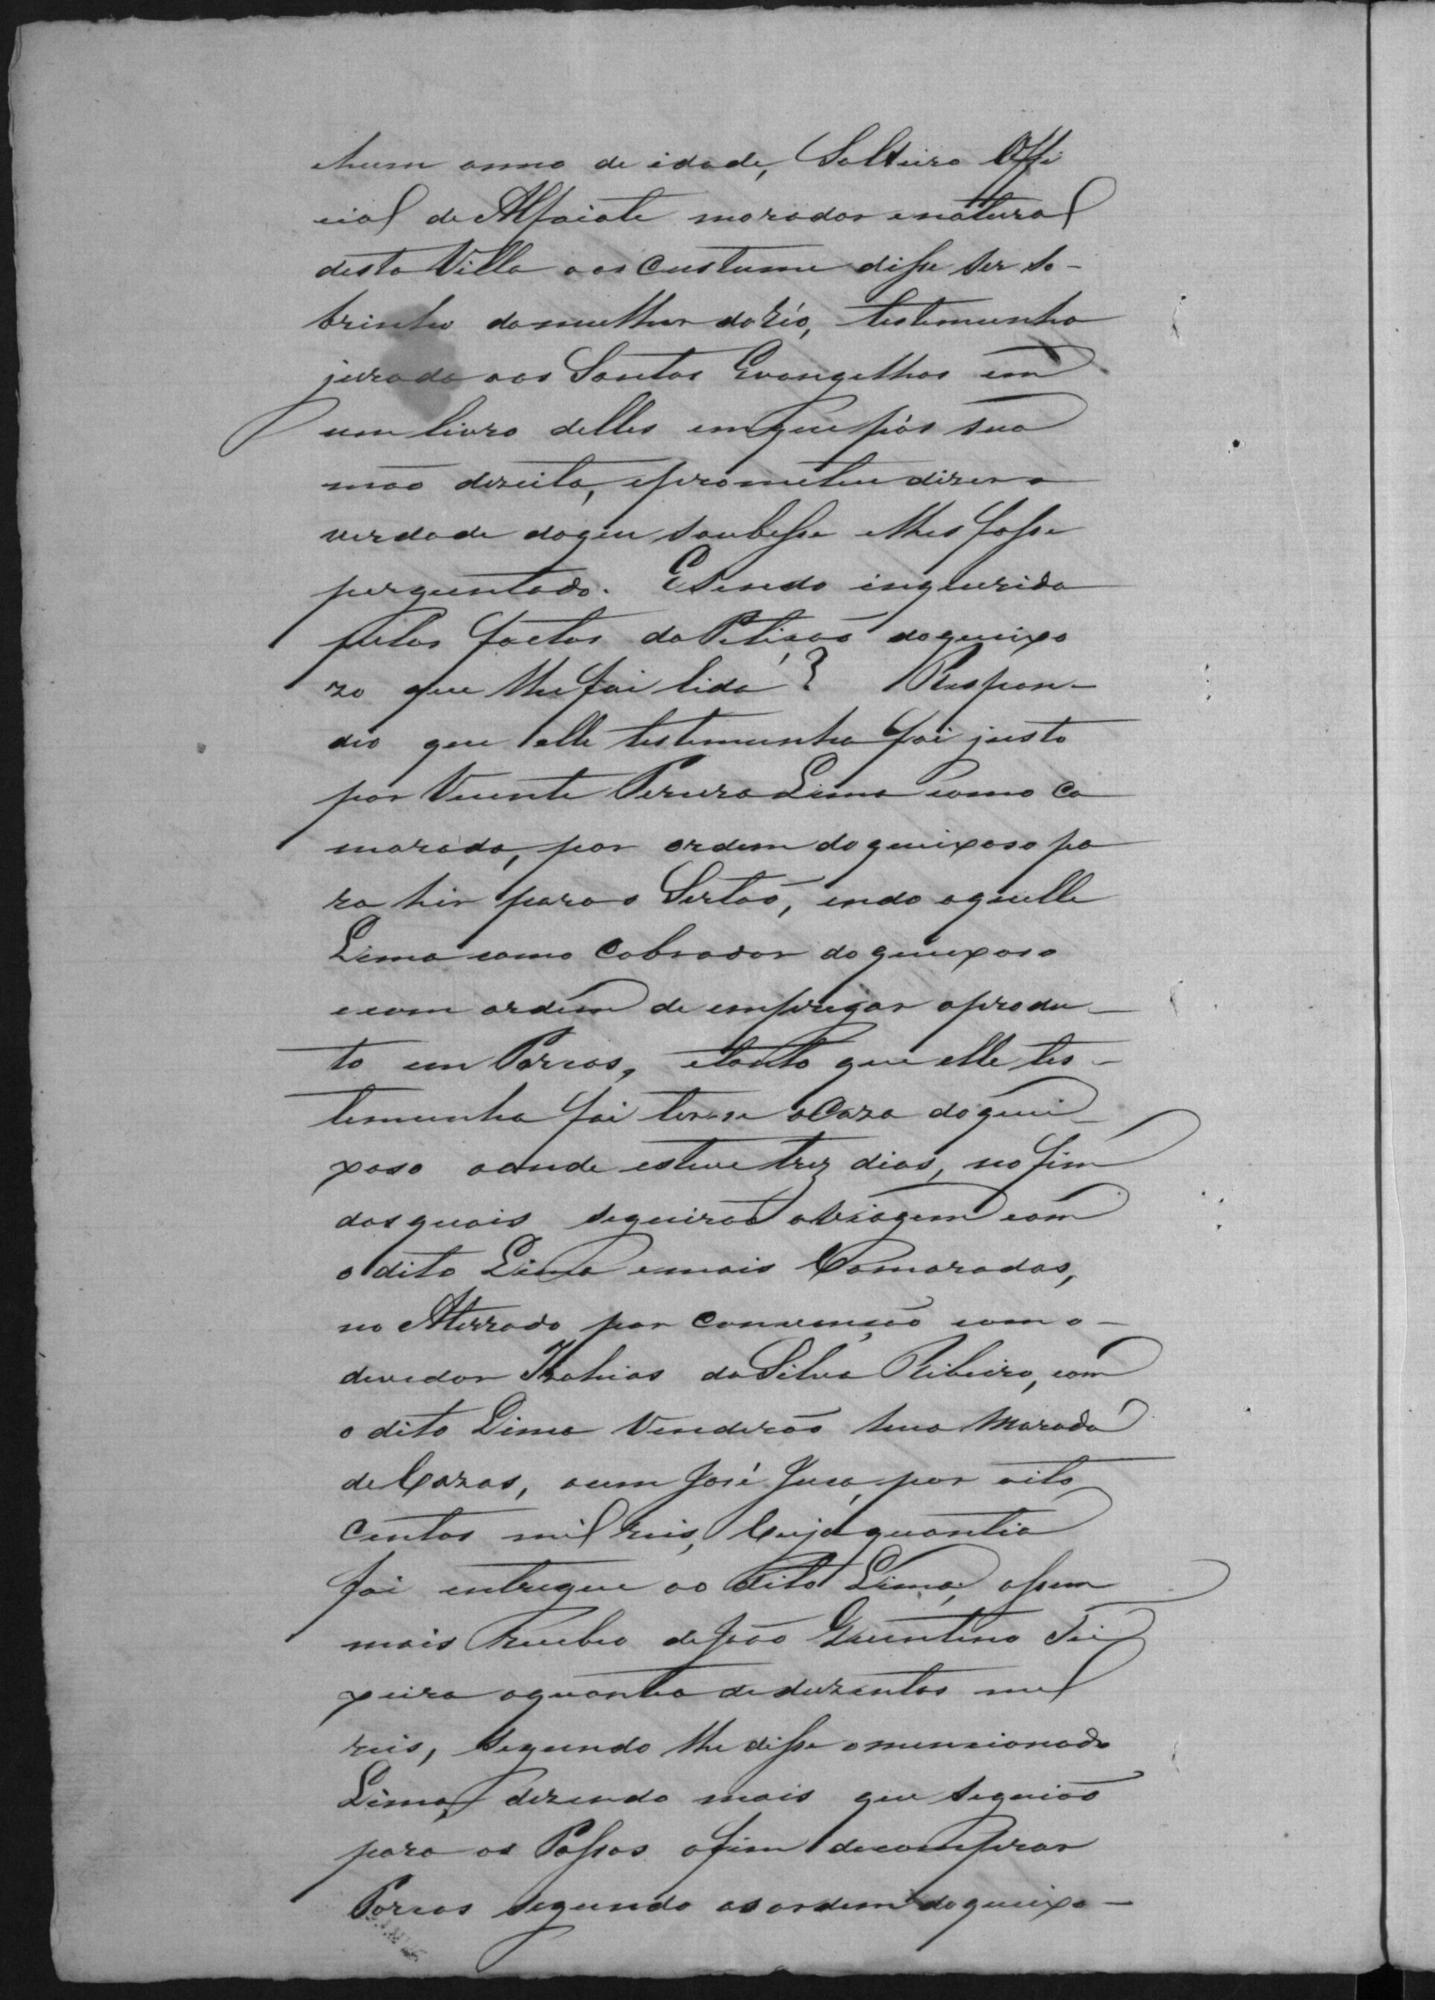 ehum anno de idade, Solteiro Offi
cial de Alfaiate morador enatural
desta Villa aos Custume disse ser so-
brinho damulher doRéo, testemunha
jurado aos Santos Evangelhos em
um livro delles emque pôs sua
mão direita, eprometeu dizer a
verdade doque soubesse elhes fosse
perguntado. Esendo inquerido
pelos factos daPetisão doqueixo
zo que lhe foi lida? Respon-
deo que elle testemunha foi justo
por Vicente Pereira Lima como Ca
marada, por ordem doqueixoso pa
ra hir para o Sertão, indo aquelle
Lima como Cobrador doqueixoso
ecom ordem de empregar oprodu-
to em Porcos, etanto que elle tes-
temunha foi ter-se aCaza doquei-
xoso aonde esteve trez dias, no fim
dos quais seguirão aViagem com
o dito Lima emais Camaradas,
no Aterrado por Convenção com o-
devedor Izahias da Silva Ribeiro, com
o dito Lima Venderão hua Morada
de Cazas, aum José Juca, por oito
Centos mil reis, Cuja quantia
foi entregue ao dito Lima, assim
mais recebeo deJoão Quintino Tei
xeira aquantia deduzentos mil
reis, segundo lhe disse omencionado
Lima, dizendo mais que seguião
para os Passos afim decomprar
Porcos segundo as ordem doqueixo-